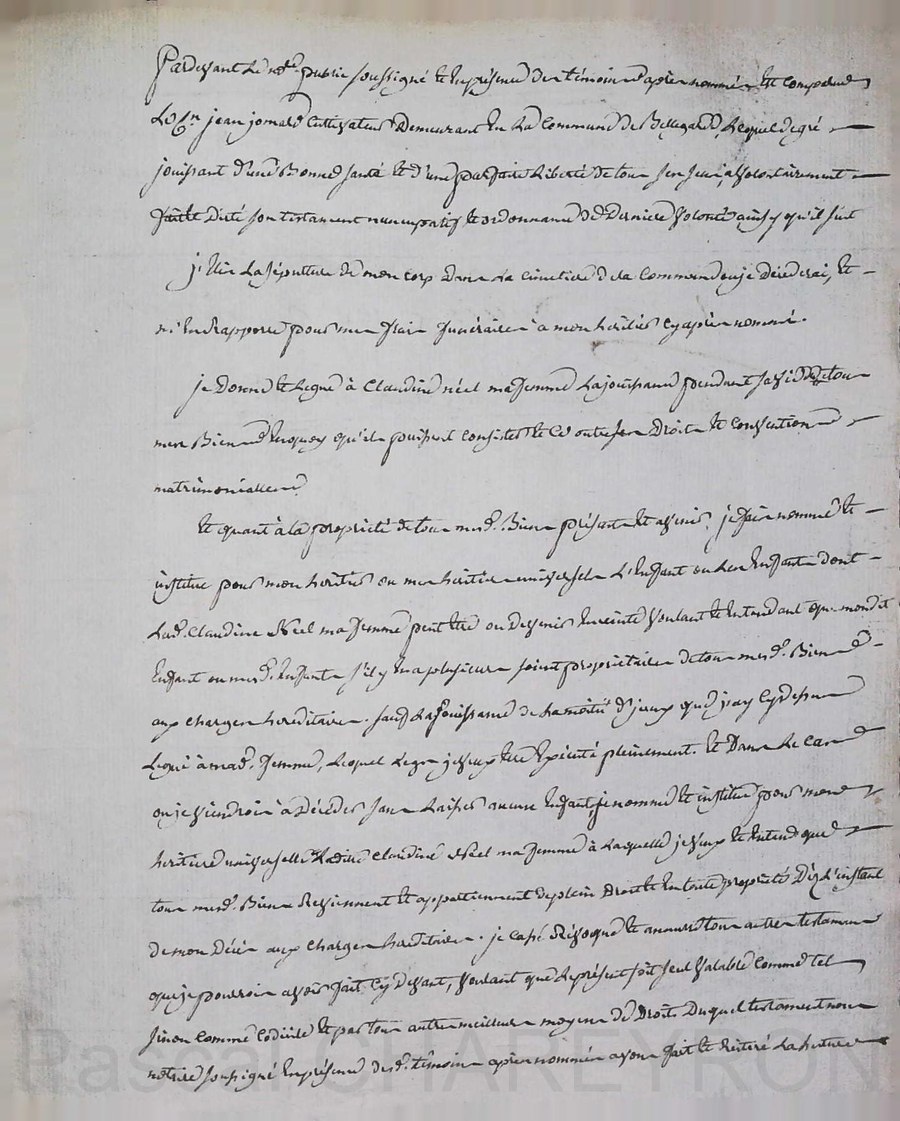 Pardevant le nore. public soussigné et en présence des témoins cy après nommés est comparu
Le Cen jean jomard cultivateur Demeurant en la Commune de Bellegarde, lequel de gré
jouissant d'une Bonne santé et d'une parfaite Liberté de tous ses sens, a volontairement
fait et dicté son testament nuncupatif et ordonnance de Derniere volonté ainsy qu'il suit
j'Elis la sépulture de mon corp dans la cimetiere de la Commune ou je décederai, et
m'en rapporte pour mes frais funéraires à mon héritier cy après nommé.
je Donne et legue à Claudine néel ma femme la jouissance pendant sa vie de tous
mes Biens en quoy qu'ils puissent consister et ce outre ses Droits et conventions
matrimonialles
Et quant à la propriété de tous mesd. Biens présents et avenir, je fais nomme et
institue pour mon héritier ou mes héritiers universels l'Enfant ou les Enfants dont
Lad. Claudine Néel ma femme peut être ou devenir enceinte voulant et entendant que mondit
Enfant ou mesd. Enfants s'il y en a plusieurs soient propriétaires de tous mesd. Biens
aux charges héréditaires. sauf la jouissance de la moitié d'yceux que j'ay cy dessus
Légué à mad. femme, lequel legs je veux être éxécuté pleinement. Et Dans le cas
ou je viendrois à Décéder sans laisser aucuns Enfants, je nomme et institue pour mon
héritiere universelle ladite Claudine Néel ma femme à laquelle je veux et entends que
tous mesd. Biens Reviennent et appartiennent de plein Droit et en toute propriété Dèz l'instant
de mon Décès aux charges héréditaires. je casse Révoque et annulle tous autres testaments
que je pourrois avoir fait cy devant, voulant que le présent soit seul valable comme tel
sinon comme codicile et par tous autres meilleurs moyens de Droit. Duquel testament nous
notaire soussigné en présence desd. témoins après nommés avons fait et réitéré la lecture
Pascal CHAREYRON